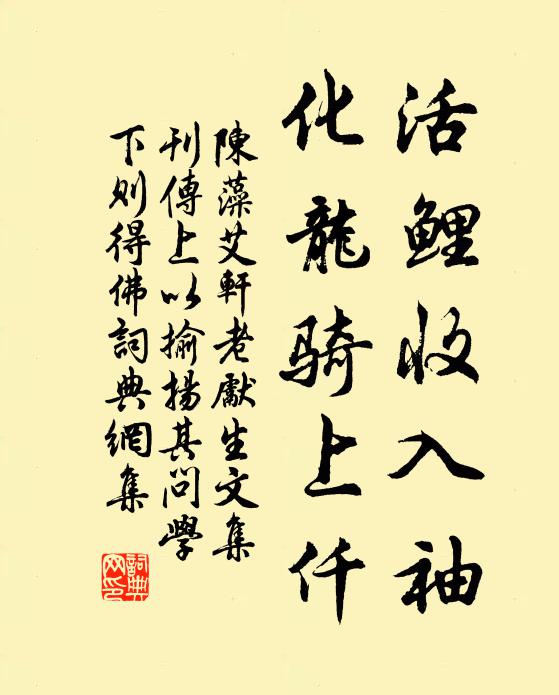 活鲤收入袖
化龍骑上仟
陳藻艾軒老獻生文集
刊傳上以揄揚其问學
下则得佛詞典網集
詞典网印